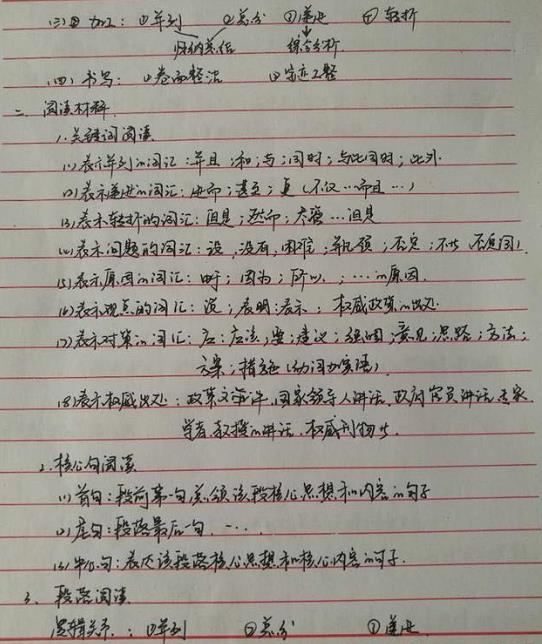 (三) 加工：①并列 ②总分 ③递进 ④转折
归纳总结 综合分析
(四) 书写：①卷面整洁 ②字迹工整
二、阅读材料
1.关键词阅读
(1)表示并列的词汇：并且；和；与；同时；与此同时；此外
(2)表示递进的词汇：进而；甚至；更（不仅…而且…）
(3)表示转折的词汇：但是；然而；尽管…但是
(4)表示问题的词汇：没，没有，困难，否定；不 不足
(5)表示原因的词汇：由于；因为；所以，；…的原因
(6)表示观点的词汇：说；表明；表示；权威政策出处
(7)表示对策的词汇：应；应该；要；建议；强调；意见；思路；方法；
方案；措施（动词加宾语）
(8)表示权威出处：政策文件，国家领导人讲话，政府官员讲话，专家
学者教授的讲话，权威刊物等
2.核心句阅读
(1)首句：段前第一句，总领该段核心思想和内容的句子
(2)尾句：段落最后一句，…
(3)中心句：表达该段落核心思想和核心内容的句子.
3、段落阅读
逻辑关系：①并列 ②总分 ③递进